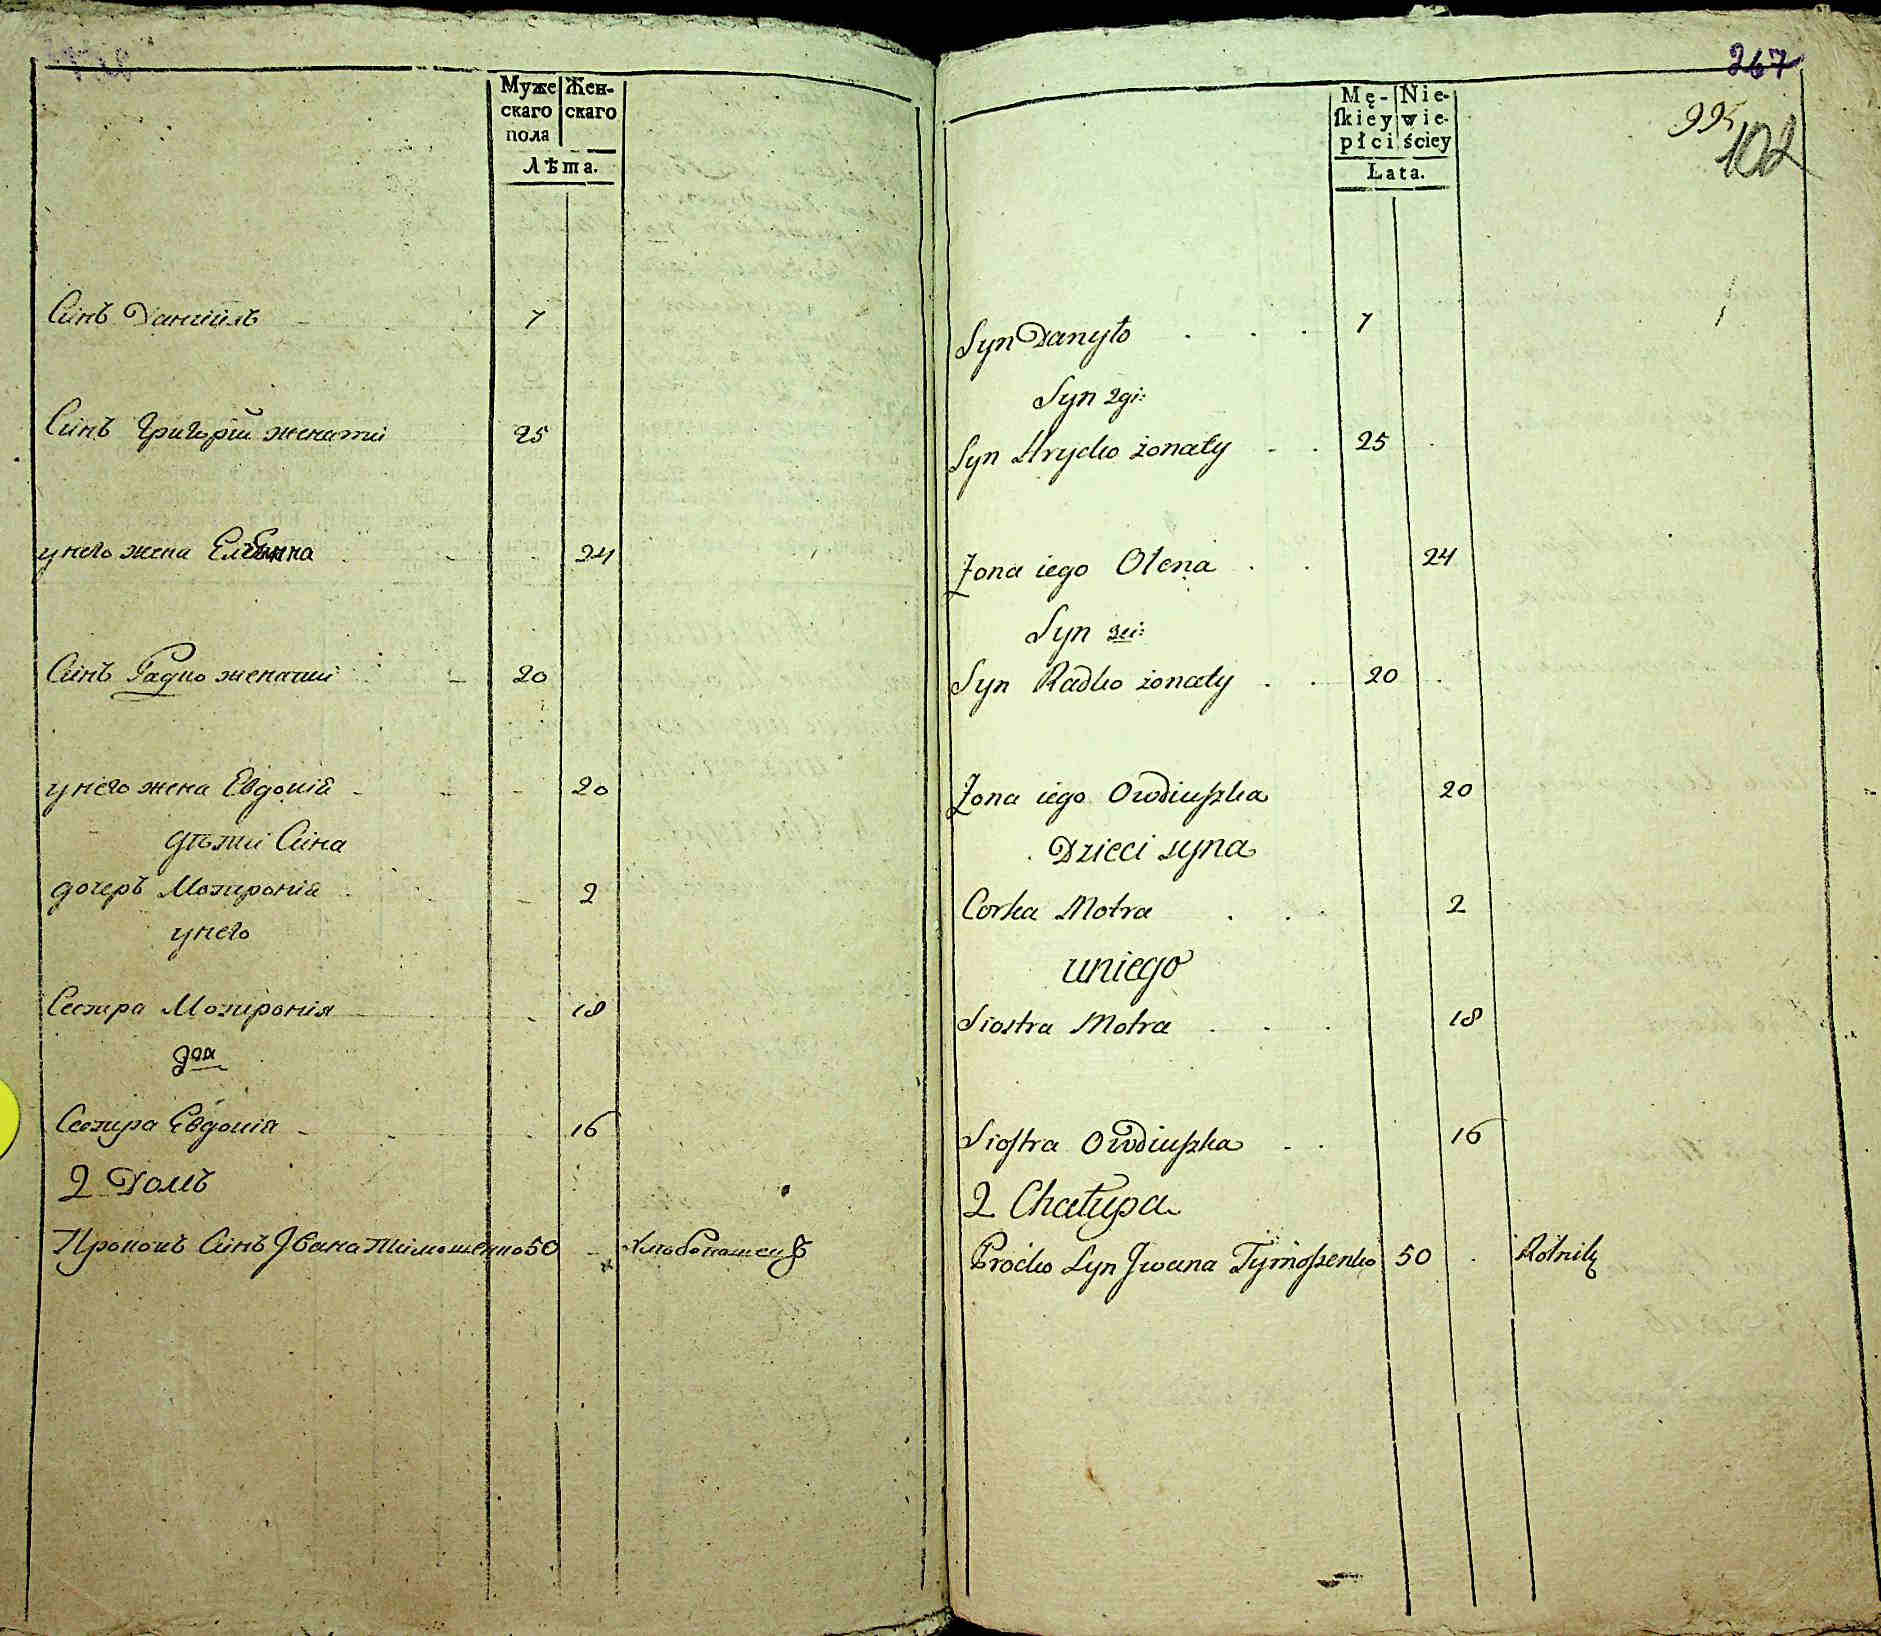 Муже Жен-
скаго скаго
пола
Лѣта.
Синъ Даниилъ 7
Синъ Григорій женатій 25
у него жена Елена 24
Синъ Радко женатій 20
у него жена Евдокія 20
дѣти Сина
дочеръ Мотронія 2
у него
Сестра Мотронія 18
2оя
Сестра Евдокія 16
2 Домъ
Прокопъ Синъ Івана Тимошенко 50 Хлебопашецъ
267
995
102
Mę- Nie-
ſkiey wie-
płci ściey
Łata.
Syn Danyło 7
Syn 2gi:
Syn Hrycko żonaty 25
Żona iego Olena 24
Syn 3ci:
Syn Radko żonaty 20
Żona iego Owdiuszka 20
Dzieci syna
Corka Motra 2
uniego
Siostra Motra 18
Siostra Owdiuszka 16
2 Chałupa
Procko Syn Jwana Tymoszenko 50 Rolnik